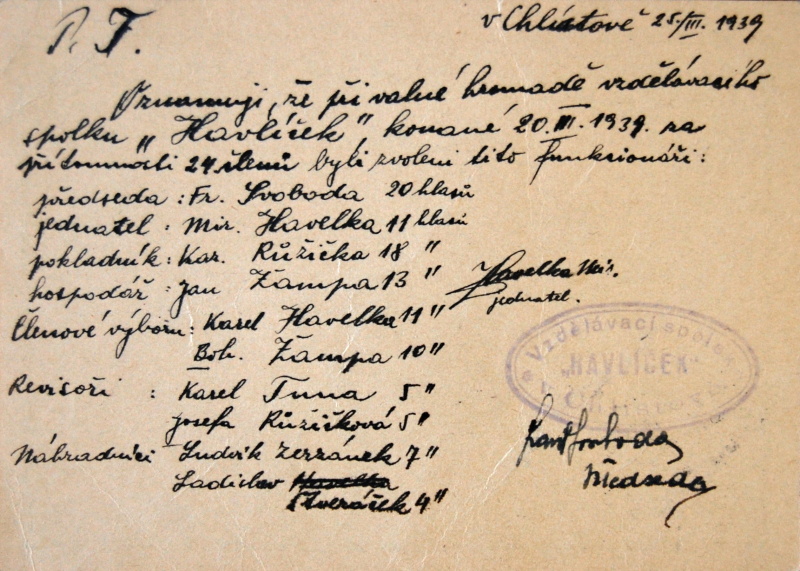 P. T.
v Chlístově 25./III. 1939
Oznamuji, že při valné hromadě vzdělávacího
spolku „Havlíček", konané 20.III.1939. za
přítomnosti 24 členů byli zvoleni tito funkcionáři:
předseda : Fr. Svoboda 20 hlasů
jednatel : Mir. Havelka 11 hlasů
pokladník : Kar. Růžička 18 "
hospodář : Jan Žampa 13 "
Havelka Mir.
jednatel.
Členové výboru: Karel Havelka 11 "
Boh. Žampa 10 "
Vzdělávací spolek
„HAVLÍČEK"
Revisoři : Karel Tuna 5 "
Josefa Růžičková 5 "
Náhradníci Ludvík Zerzánek 7 "
Ladislav
Čtveráček 4 "
Svoboda
předseda